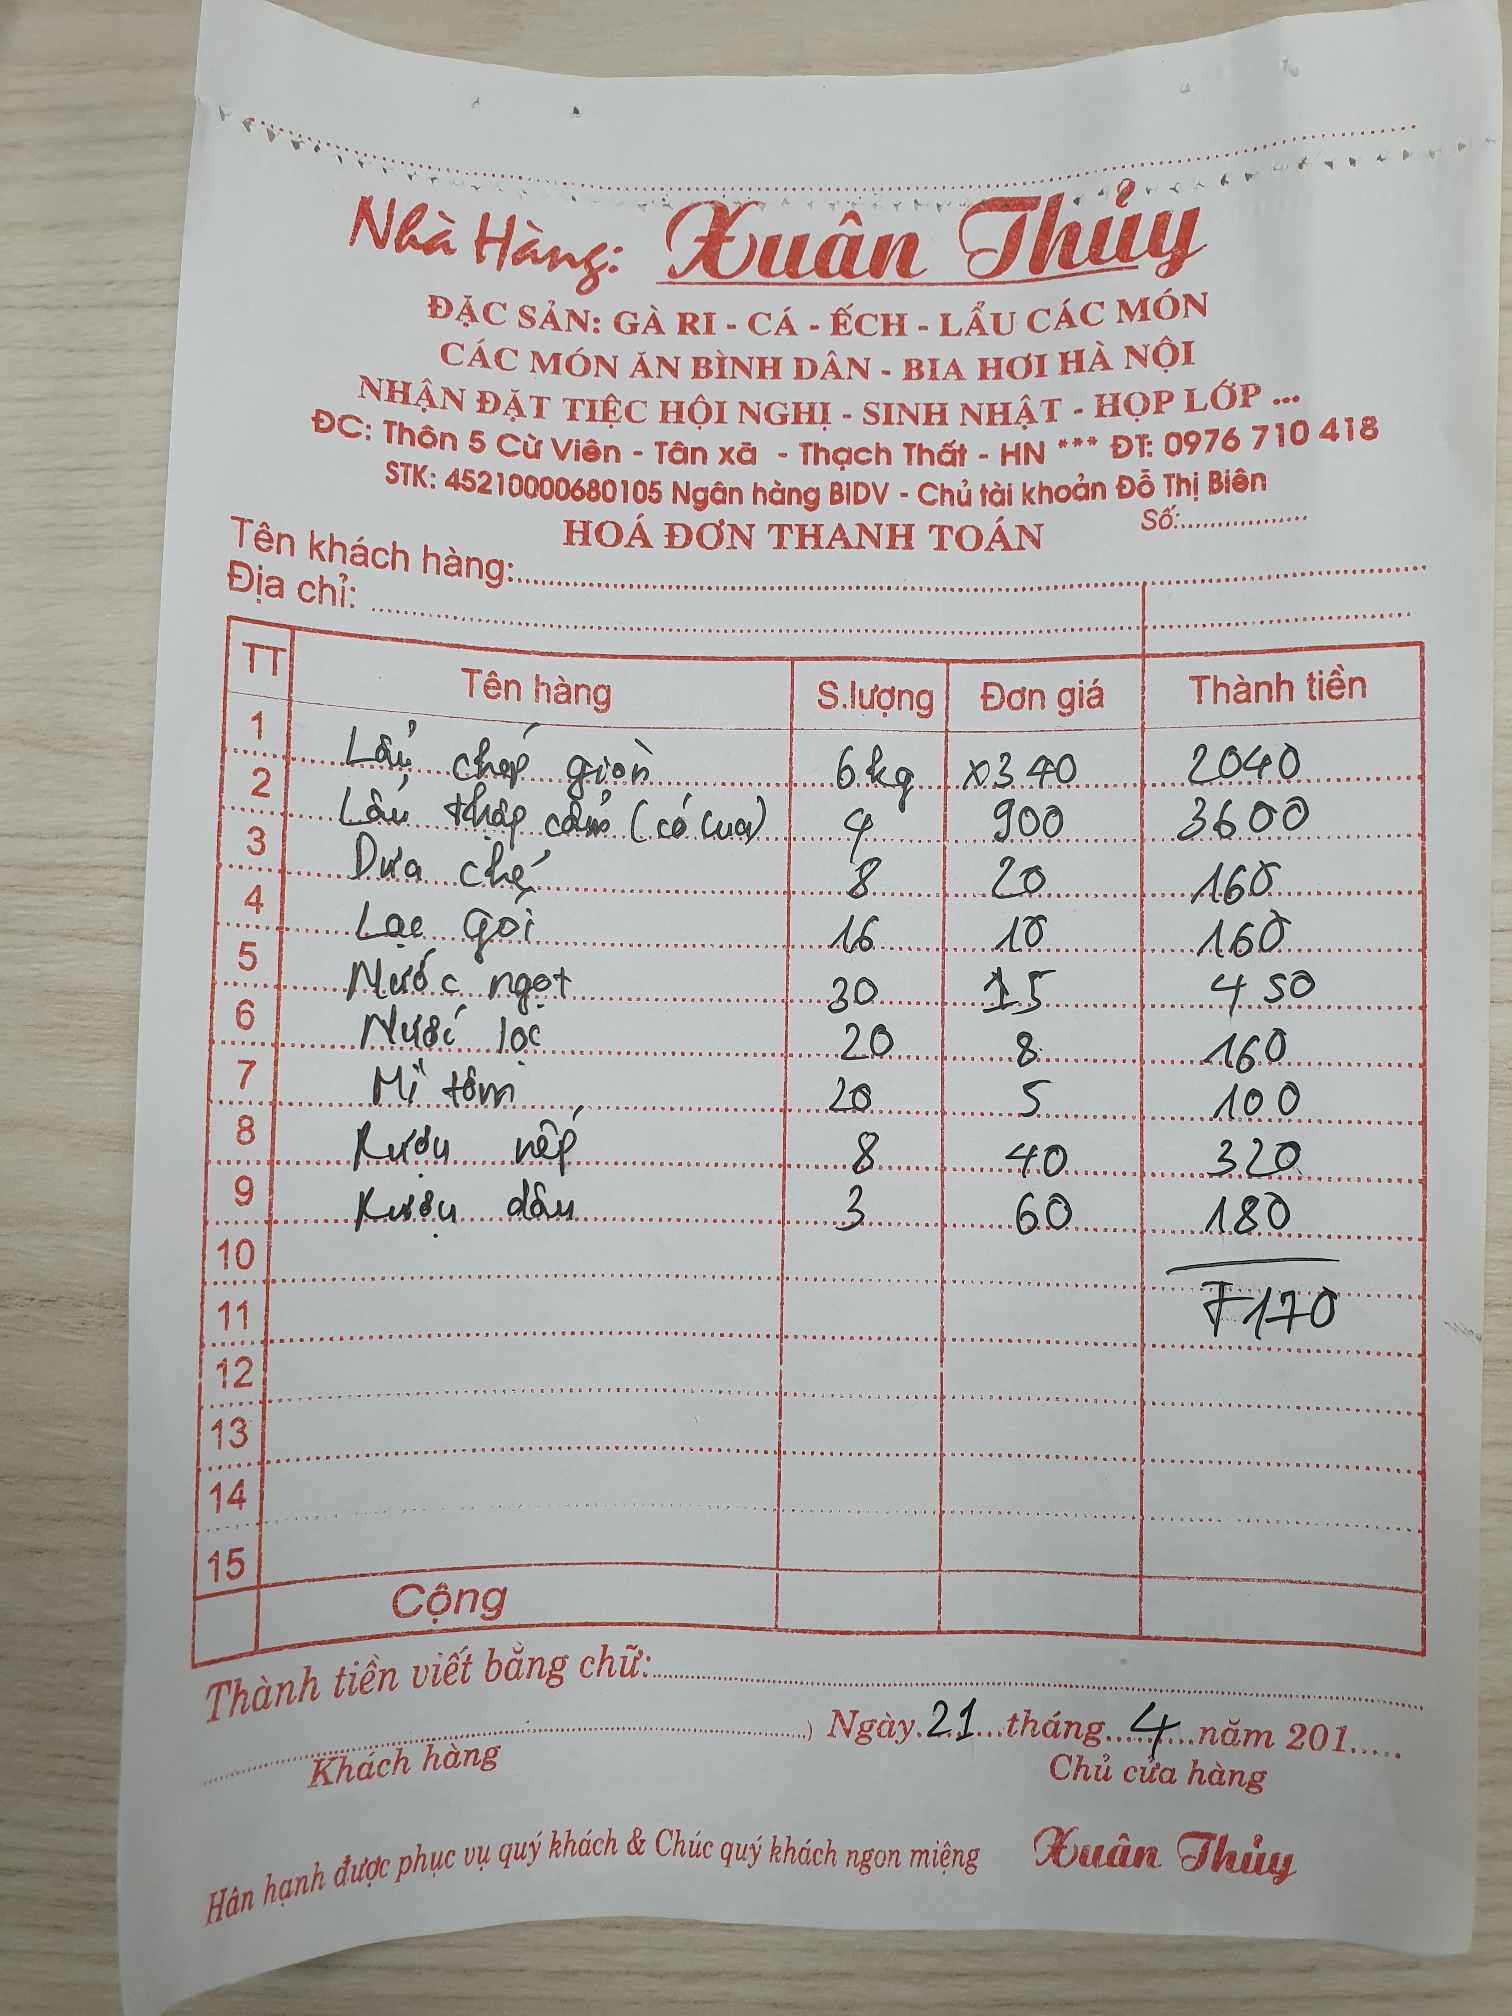 Nhà Hàng: Xuân Thủy
ĐẶC SẢN: GÀ RI - CÁ - ẾCH - LẨU CÁC MÓN
CÁC MÓN ĂN BÌNH DÂN - BIA HƠI HÀ NỘI
NHẬN ĐẶT TIỆC HỘI NGHỊ - SINH NHẬT - HỌP LỚP ...
ĐC: Thôn 5 Cừ Viên - Tân xã - Thạch Thất - HN *** ĐT: 0976 710 418
STK: 45210000680105 Ngân hàng BIDV - Chủ tài khoản Đỗ Thị Biên
HOÁ ĐƠN THANH TOÁN Số:
Tên khách hàng:
Địa chỉ:
TT Tên hàng S.lượng Đơn giá Thành tiền
1 Lẩu chép giòn 6kg x340 2040
2 Lẩu thập cẩm (có cua) 4 900 3600
3 Dưa chẻ 8 20 160
4 Lạc gói 16 10 160
5 Nước ngọt 30 15 450
6 Nước lọc 20 8 160
7 Mì tôm 20 5 100
8 Rượu nếp 8 40 320
9 Rượu dâu 3 60 180
10
11 7170
12
13
14
15
Cộng
Thành tiền viết bằng chữ:
) Ngày 21 tháng 4 năm 201
Khách hàng Chủ cửa hàng
Hân hạnh được phục vụ quý khách & Chúc quý khách ngon miệng Xuân Thủy